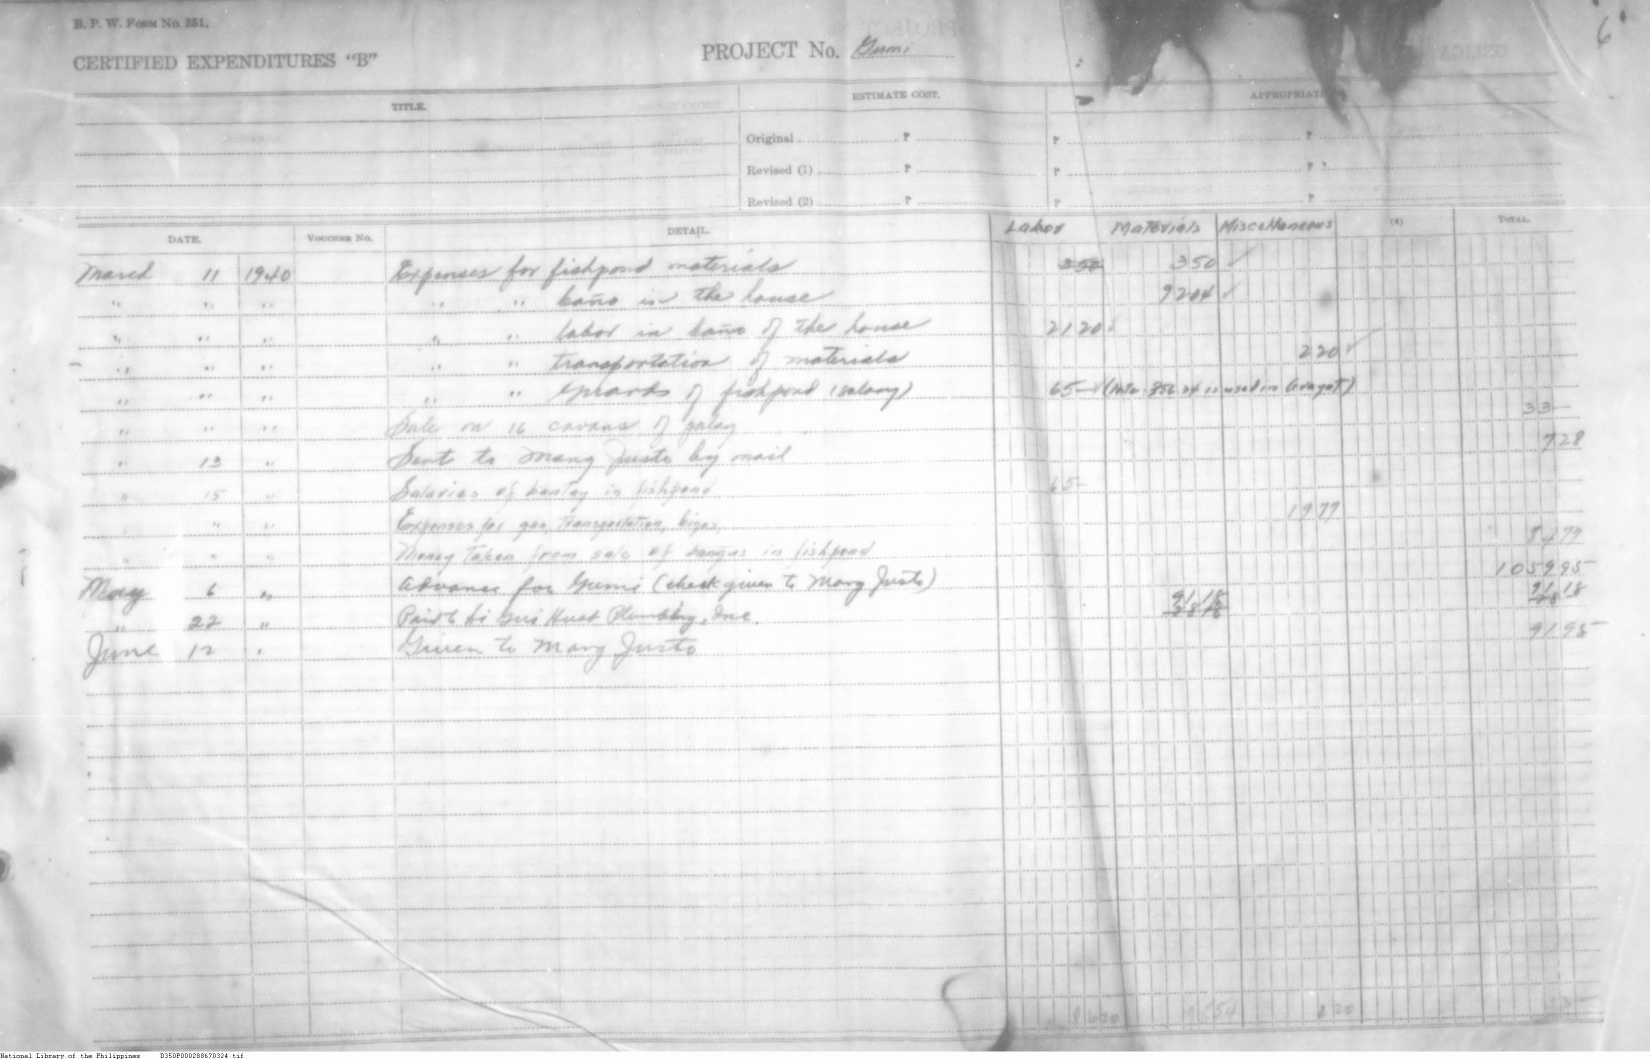 B. P. W. FORM NO. 251.
6
CERTIFIED EXPENDITURES "B"
PROJECT No. Gumi
TITLE.
ESTIMATE COST.
Original ₱ ₱ ₱
Revised (1) ₱ ₱ ₱
Revised (2) ₱ ₱ ₱
DATE. VOUCHER NO. DETAIL. Labor Materials Miscellaneous (4) TOTAL.
March 11 1940 Expenses for fishpond materials 350 350 ✓
" " " " " baño in the house 9204 ✓
" " " " " labor in baño of the house 2120
" " " " " transportation of materials 220 ✓
" " " " " guards of fishpond (salary) 65— used in
" " " Sale on 16 cavans of palay 33—
" 13 " Sent to Mang Justo by mail 728
" 15 " Salaries of bantay in fishpond 65—
" " Expenses for gas, transportation, bigas, 1977
" " " Money taken from sale of bangus in fishpond
May 6 " Advance for Gumi (check given to Mang Justo) 105995
" 22 " Paid to Plumbing, Inc. 18
June 12 " Given to Mang Justo 9195
National Library of the Philippines D350P000288670324.tif